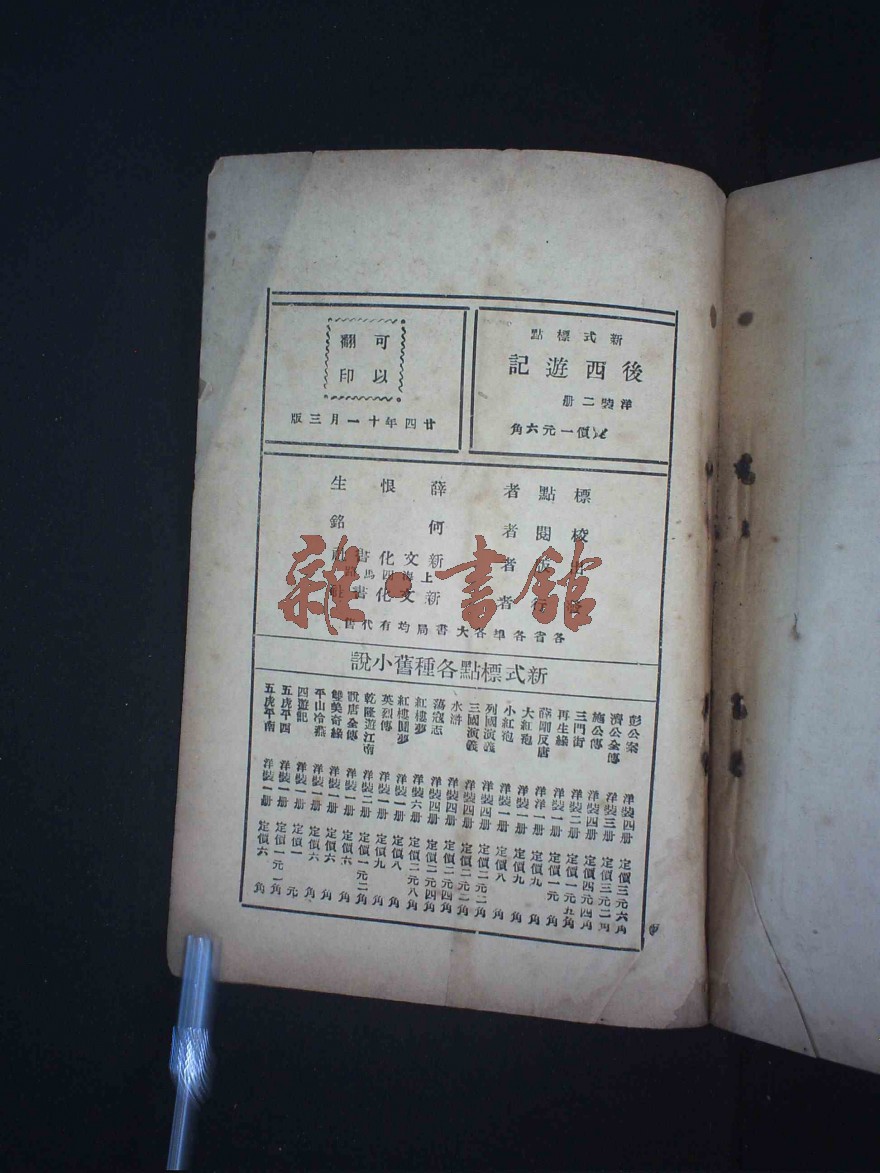 新式標點
後西遊記
洋裝二册
價一元六角
可以
翻印
廿四年十一月三版
標點者 薛恨生
校閱者 何銘
版者 新文化書社
上海四馬路
行者 新文化書社
各省各埠各大書局均有代售
新式標點各種舊小說
彭公案 洋裝四册 定價三元六角
濟公全傳 洋裝三册 定價三元二角
施公傳 洋裝四册 定價四元四角
三門街 洋裝二册 定價一元五角
再生緣 洋裝一册 定價一元
薛剛反唐 洋裝一册 定價九角
大紅袍 洋裝一册 定價九角
小紅袍 洋裝一册 定價八角
列國演義 洋裝四册 定價二元二角
三國演義 洋裝四册 定價二元二角
水滸 洋裝四册 定價二元四角
蕩寇志 洋裝四册 定價二元四角
紅樓夢 洋裝六册 定價二元八角
紅樓圓夢 洋裝一册 定價八角
英烈傳 洋裝一册 定價九角
乾隆遊江南 洋裝二册 定價一元二角
說唐全傳 洋裝一册 定價六角
雙美奇緣 洋裝一册 定價六角
平山冷燕 洋裝一册 定價六角
四遊記 洋裝一册 定價一元
五虎平西 洋裝一册 定價一元一角
五虎平南 洋裝一册 定價六角
雜·書館